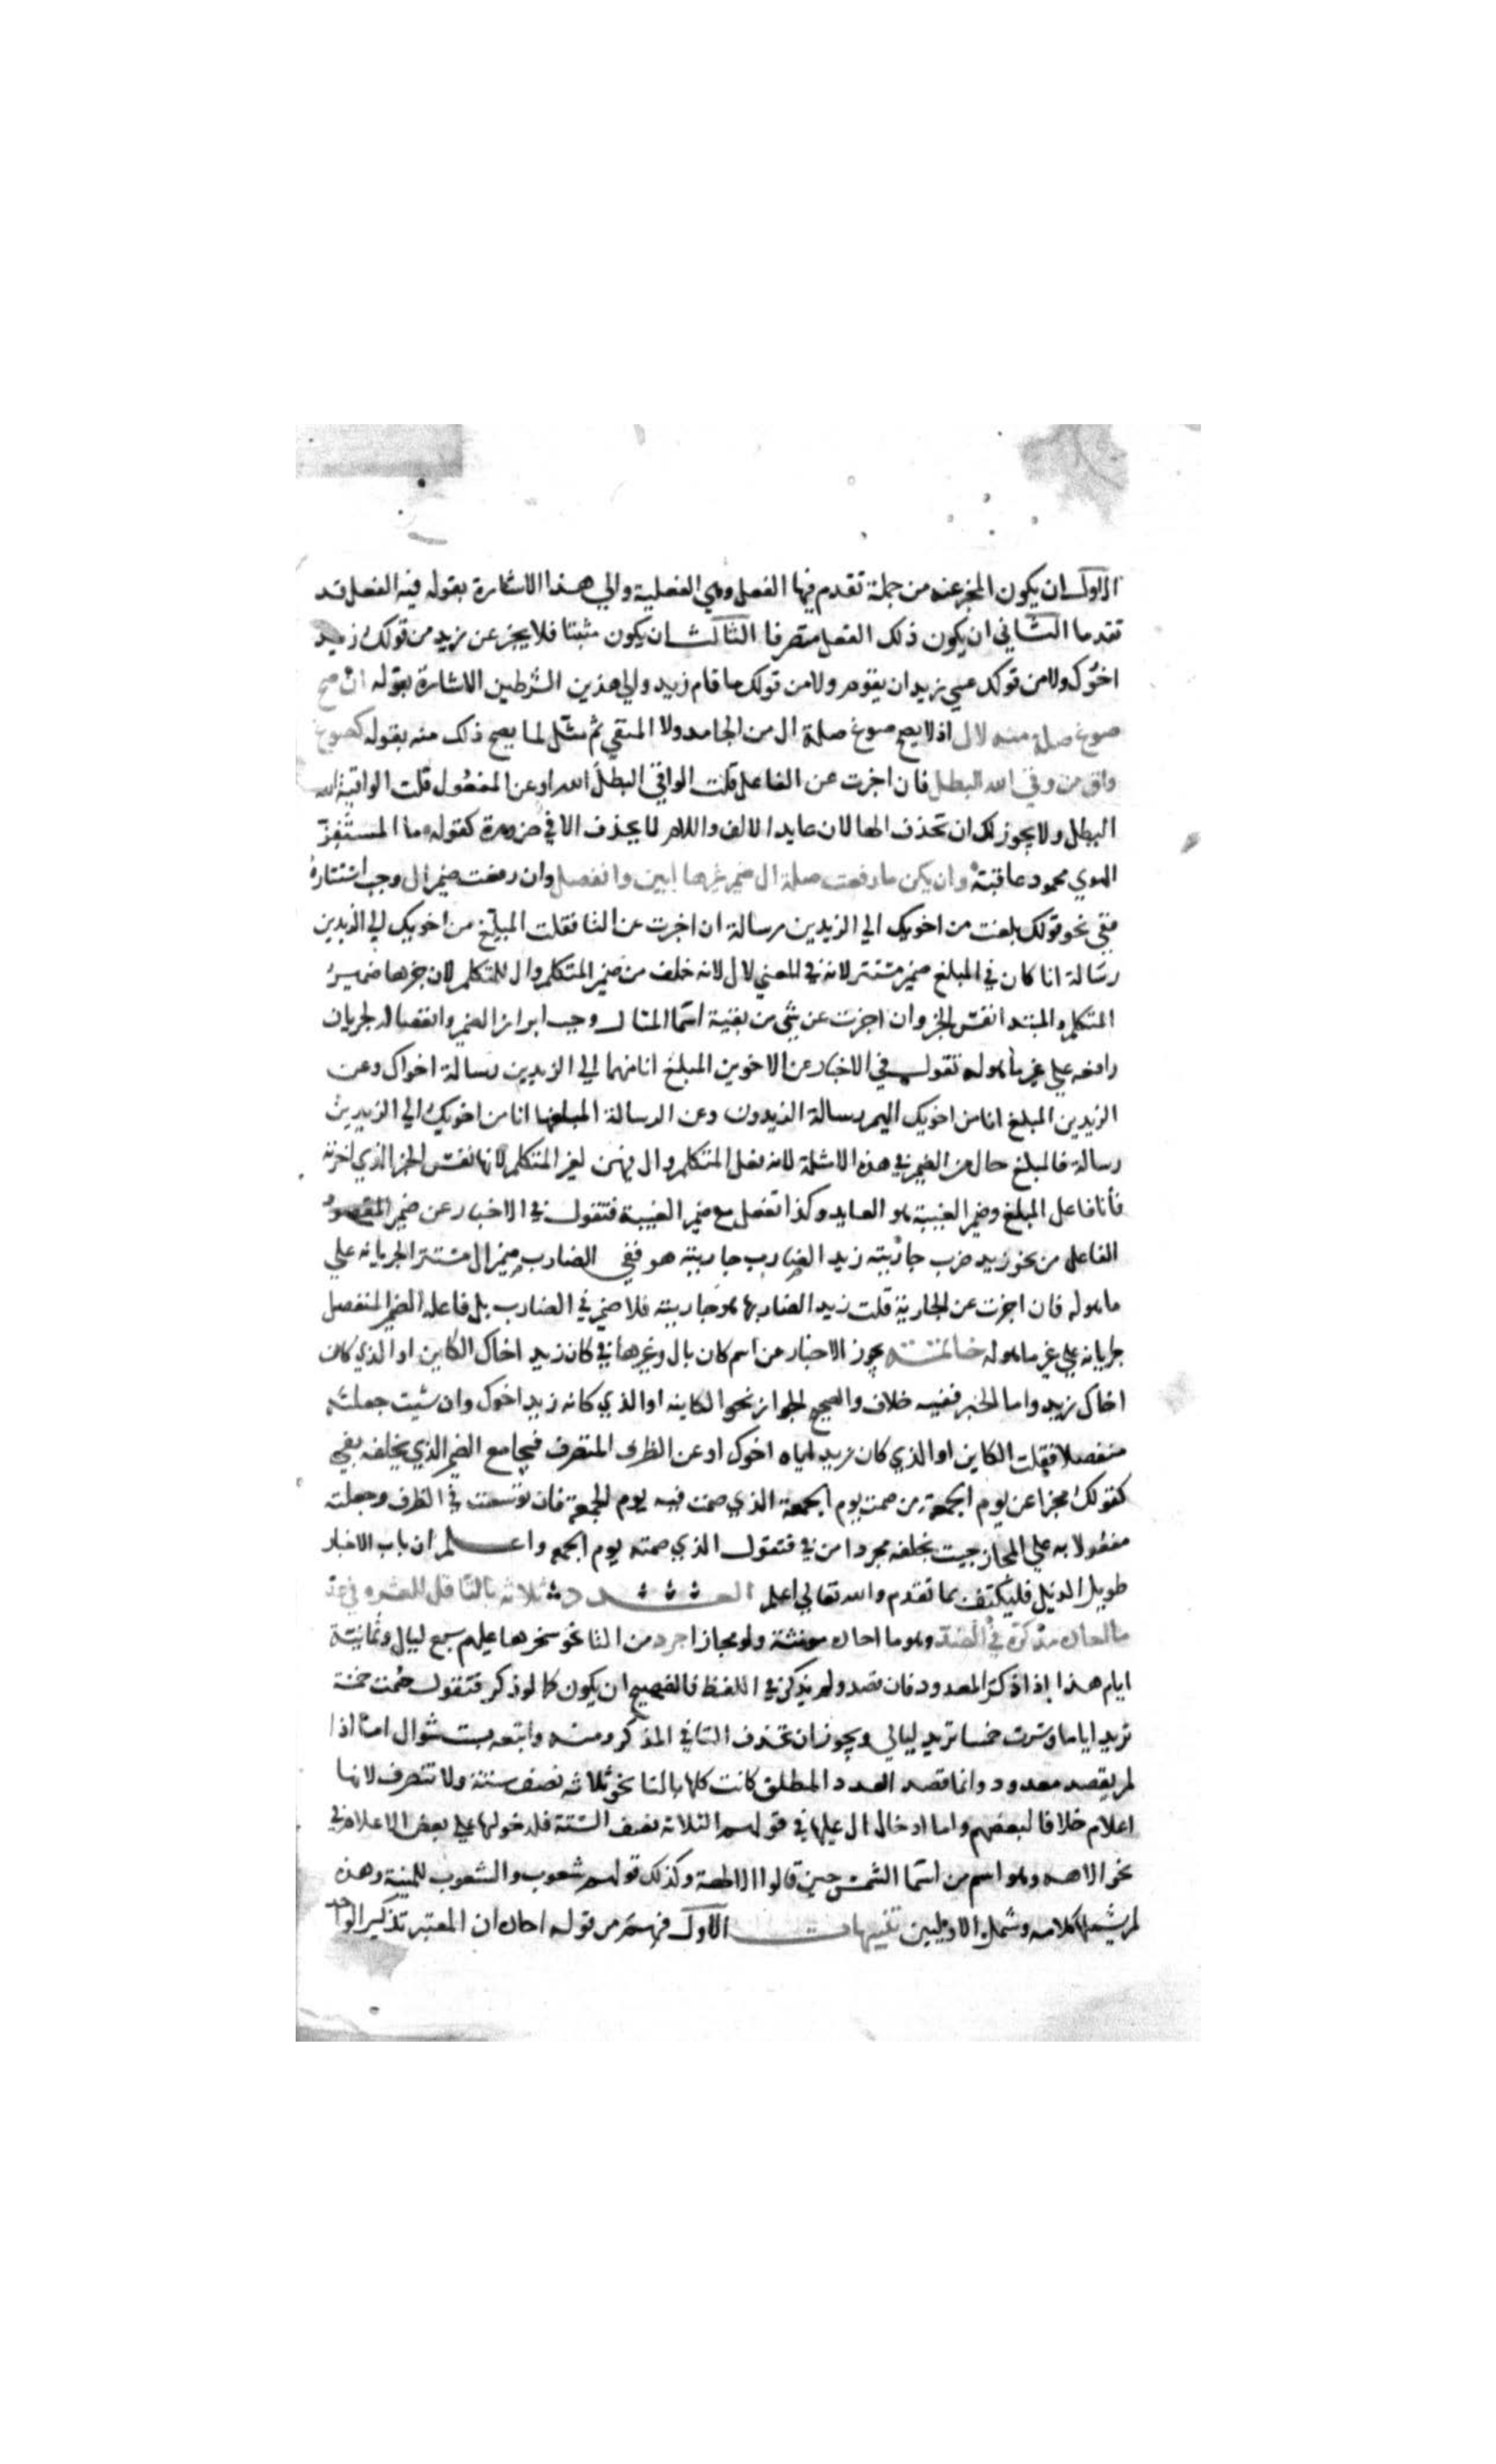 الاول ان يكون المخبر عنه من جملة تقدم فيها الفعل وهي الفعلية والي هذا الاشارة بقوله فيه الفعل قد
تقدما الثاني ان يكون ذلك الفعل متصرفا الثالث ان يكون مثبتا فلا يخبر عن زيد من قولك زيد
اخوك ولا من قولك عسي زيد ان يقوم ولا من قولك ما قام زيد والي هذين الشرطين الاشارة بقوله ان صح
صوغ صلة منه لال اذ لا يصح صوغ صلة ال من الجامد ولا المنفي ثم مثل لما يصح ذلك منه بقوله كصوغ
واق من وقي الله البطل فان اخبرت عن الفاعل قلت الواقي البطل الله او عن المفعول قلت الواقيه الله
البطل ولا يجوز لك ان تحذف الها لان عايد الالف واللام لا يحذف الا في ضرورة كقوله ما المستفز
الهوي محمود عاقبة وان يكن ما رفعت صلة ال ضمير غيرها ابين وانفصل وان رفعت ضمير ال وجب استتاره
ففي نحو قولك بلغت من اخويك الي الزيدين رسالة ان اخبرت عن التا فقلت المبلغ من اخويك الي الزيدين
رسالة انا كان في المبلغ ضمير مستتر لانه في المعني لال لانه خلف من ضمير المتكلم وال للمتكلم لان خبرها ضمير
المتكلم والمبتدا نفس الخبر وان اخبرت عن شي من بقية اسما المثال وجب ابراز الضمير وانفصاله لجريان
رافعه علي غير ما هو له تقول في الاخبار عن الاخوين المبلغ انا منهما الي الزيدين رسالة اخواك وعن
الزيدين المبلغ انا من اخويك اليهم رسالة الزيدون وعن الرسالة المبلغها انا من اخويك الي الزيدين
رسالة فالمبلغ خال من الضمير في هذه الامثلة لانه فعل المتكلم وال فيهن لغير المتكلم لانها نفس الخبر الذي اخرته
فأنا فاعل المبلغ وضمير الغيبة هو العايد وكذا تفعل مع ضمير الغيبة فتقول في الاخبار عن ضمير
الفاعل من نحو زيد ضرب جاريته زيد الضارب جاريته هو ففي الضارب ضمير ال مستترا لجريانه علي
ما هو له فان اخبرت عن الجارية قلت زيد الضاربها هو جاريته فلا ضمير في الضارب بل فاعله الضمير المنفصل
جريانه علي غير ما هو له خاتمة يجوز الاخبار عن اسم كان بال وغيرها في كان زيد اخاك الكاين او الذي كان
اخاك زيد واما الخبر ففيه خلاف والصحيح الجواز نحو الكاينه او الذي كانه زيد اخوك وان شيت جعلته
منفصلا فقلت الكاين او الذي كان زيد اياه اخوك او عن الظرف المتصرف فيجا مع الضمير الذي يخلفه بفي
كقولك مخبرا عن يوم الجمعة من صمت يوم الجمعة الذي صمت فيه يوم الجمعة فان توسعت في الظرف وجعلته
مفعولا به علي المجاز جيت بخلفه مجردا من في فتقول الذي صمته يوم الجمعه واعلم ان باب الاخبار
طويل الذيل فليكتف بما تقدم والله تعالي اعلم العدد ثلاثة بالتا قل للعشره في عد
ما احاده مذكرة في الضد وهو ما احاده مونثة ولو مجازا جرد من التا نحو سخرها عليهم سبع ليال وثمانية
ايام هذا اذا ذكر المعدود فان قصد ولم يذكر في اللفظ فالفصيح ان يكون كما لو ذكر فتقول صمت خمسة
تريد اياما وسرت خمسا تريد ليالي ويجوز ان تحذف التا في المذكر ومنه واتبعه بست شوال اما اذا
لم يقصد معدود وانما قصد العدد المطلق كانت كلها بالتا نحو ثلاثه نصف ستة ولا تنصرف لانها
اعلام خلافا لبعضهم واما ادخال ال عليها في قولهم الثلاثه نصف الستة فلدخولها علي بعض الاعلام في
نحو الاهه وهو اسم من اسما الشمس حين قالوا الالاهة وكذلك قولهم شعوب والشعوب للمنية وهذه
لم يشملها كلامه وشمل الاوليين تنبيهات الاول فهم من قوله احاده ان المعتبر تذكير الواحد